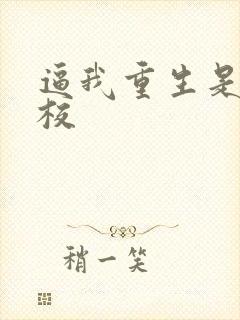 逼我重生是
校
稍一笑